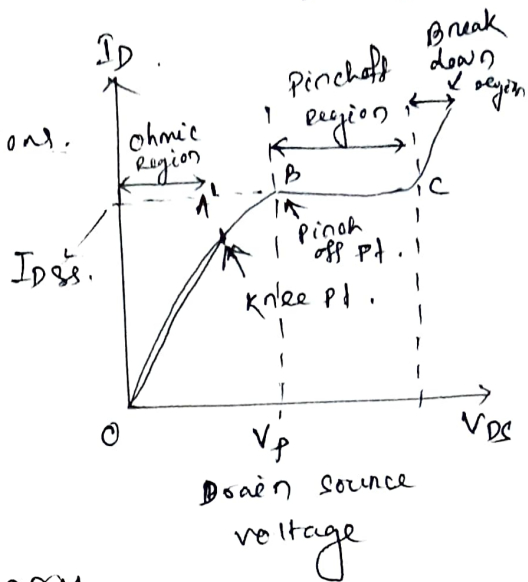 I_D.
Break
down
region
Pinchoff
region
ons.
Ohmic
Region
A'
B
C
Pinch
off pt.
I_DSS.
Knee pt.
O
V_P
V_DS
Drain source
voltage